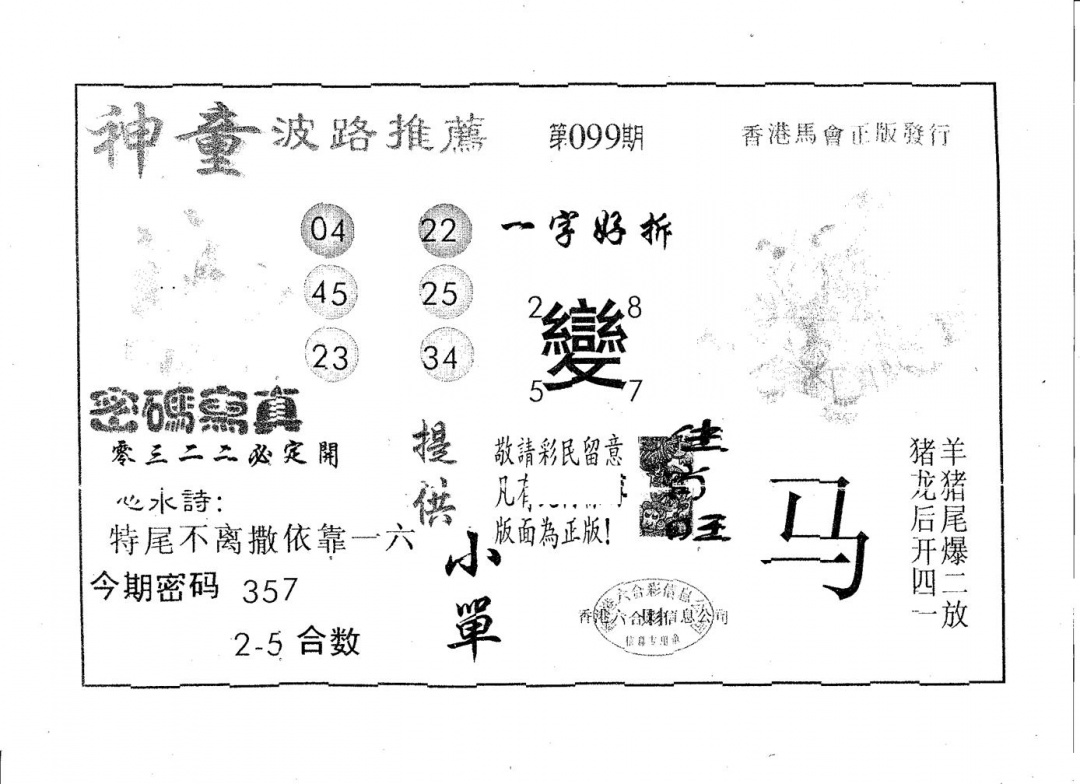 神童波路推薦 第099期 香港馬會正版發行
04 22
45 25
23 34
一字好拆
2 8
變
5 7
密碼寫真
零三二二必定開
心水詩:
特尾不离撒依靠一六
今期密码 357
2-5 合数
提供
小單
敬請彩民留意
凡有
版面為正版!
马
羊猪尾爆二放
猪龙后开四一
香港六合彩信息公司
香港六合彩信息公司